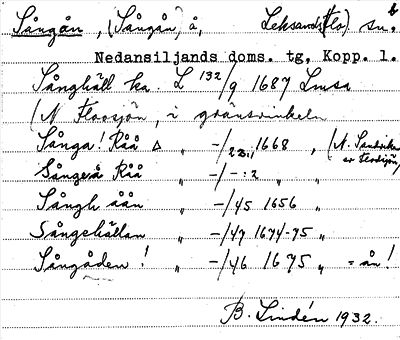 Sångån, (Sångån) å, Leksands (Flo) sn.
Nedansiljands doms. tg, Kopp. l.
Sånghäll ka. L 132/9 1687 Lmsa
(N. Floosjön, i gränsvinkeln
Sånga! Råå △ " -/23:, 1668 " (N. Sandviken
Sångeå Råå " -/-:2 " av Flosjön)
Sångh åån " -/45 1656 "
Sångehällan " -/47 1674-75 "
Sångåden! " -/46 1675 " = ån!
B. Lindén 1932.